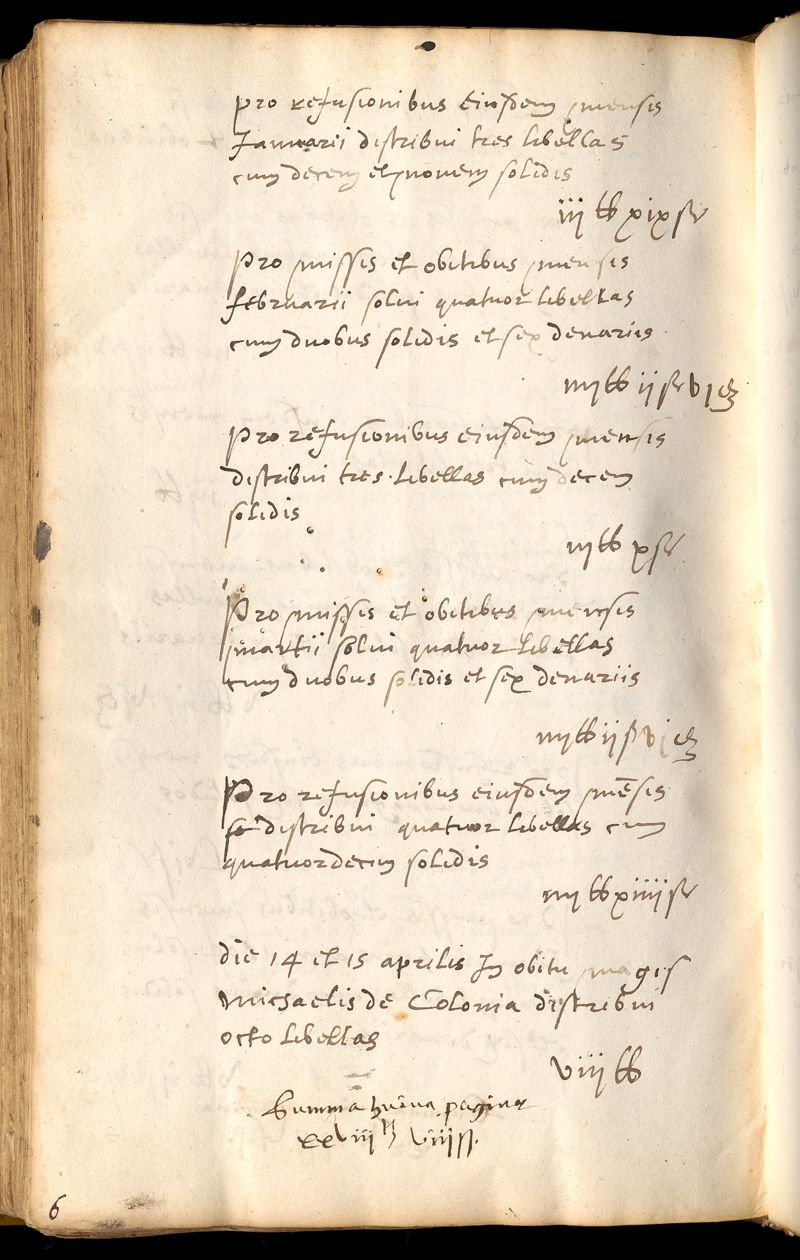 pro refusionibus eiusdem mensis
Januarii distribui tres libellas
cum decem et novem solidis
iij ℔ xix s
Pro missis et obitibus mensis
februarii solui quatuor libellas
cum duobus solidis et sex denariis
iiij ℔ ij s vj d
Pro refusionibus eiusdem mensis
distribui tres libellas cum decem
solidis
iij ℔ x s
Pro missis et obitibus mensis
martii solui quatuor libellas
cum duobus solidis et sex denariis
iiij ℔ ij s vj d
Pro refusionibus eiusdem mēsis
distribui quatuor libellas cum
quatuordecim solidis
iiij ℔ xiiij s
die 14 et 15 aprilis In obitu magis
Michaelis de Colonia distribui
octo libellas
viij ℔
Summa huius pagine
xxviij ℔ viij ss.
6